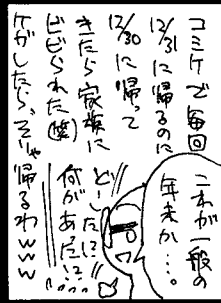 コミケで毎回
12/31に帰るのに
12/30に帰って
きたら家族に
ビビられた(笑)
ケガしたら、そりゃ帰るわwww
これが一般の
年末か…。
どーした!?
何があった!?